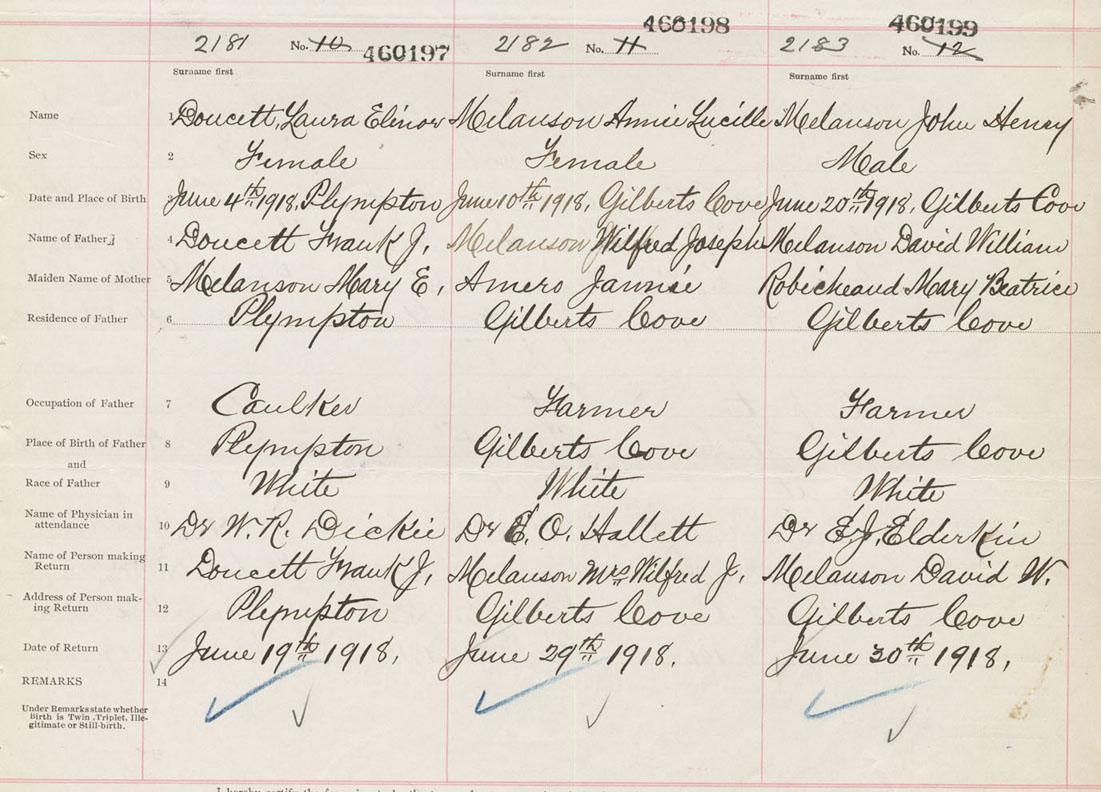 460198 460199
2181 No. 10 460197 2182 No. 11 2183 No. 12
Surname first Surname first Surname first
Name 1 Doucett, Laura Elinor Melanson Annie Lucille Melanson John Henry
Sex 2 Female Female Male
Date and Place of Birth June 4th 1918, Plympton June 10th 1918, Gilberts Cove June 20th 1918, Gilberts Cove
Name of Father 4 Doucett Frank J, Melanson Wilfred Joseph Melanson David William
Maiden Name of Mother 5 Melanson Mary E, Amero Jannie Robicheaud Mary Beatrice
Residence of Father 6 Plympton Gilberts Cove Gilberts Cove
Occupation of Father 7 Caulker Farmer Farmer
Place of Birth of Father 8 Plympton Gilberts Cove Gilberts Cove
and
Race of Father 9 White White White
Name of Physician in
attendance 10 Dr W. R. Dickie Dr E. O. Hallett Dr E. J. Elderkin
Name of Person making
Return 11 Doucett Frank J, Melanson Mrs Wilfred J, Melanson David W.
Address of Person mak-
ing Return 12 Plympton Gilberts Cove Gilberts Cove
Date of Return 13 June 19th 1918, June 29th 1918. June 30th 1918,
REMARKS 14
Under Remarks state whether
Birth is Twin, Triplet, Ille-
gitimate or Still-birth.